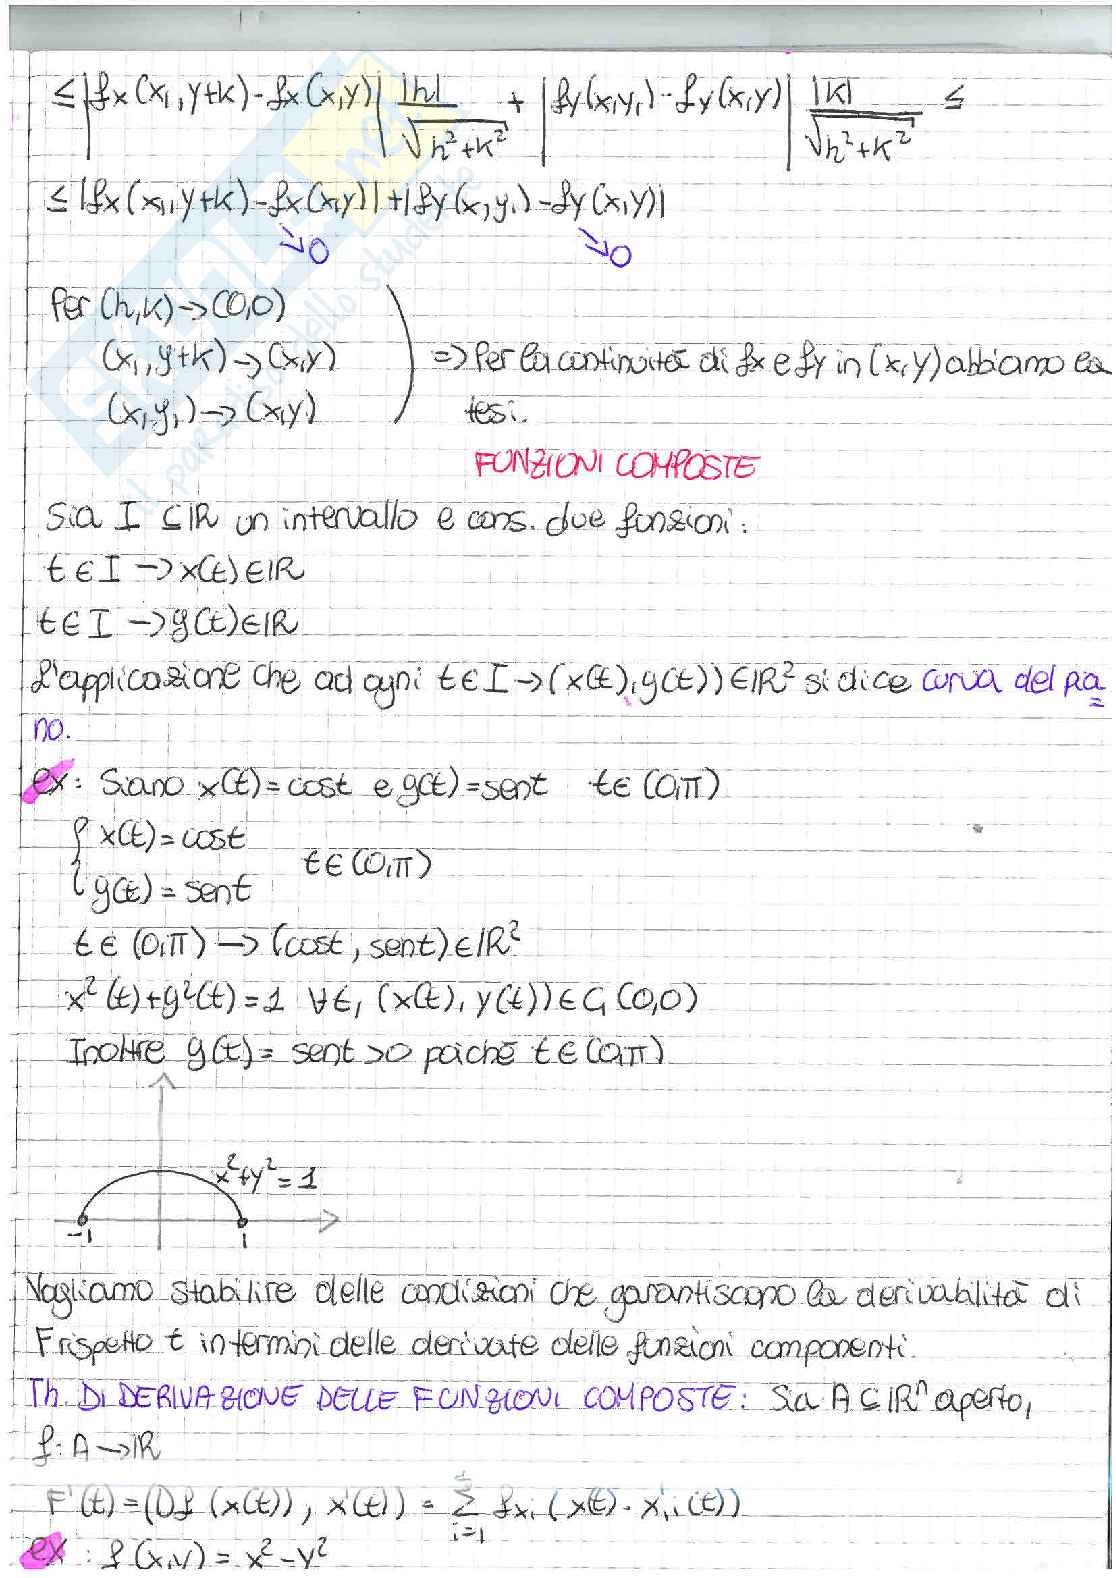 ≤ |fx(x₁,y+k)-fx(x,y)| |h|/√(h²+k²) + |fy(x,y₁)-fy(x,y)| |k|/√(h²+k²) ≤
≤ |fx(x₁,y+k)-fx(x,y)|+|fy(x,y₁)-fy(x,y)|
↘0 ↘0
Per (h,k)→(0,0)
(x₁,y+k)→(x,y)
(x,y₁)→(x,y)
=> Per la continuità di fx e fy in (x,y) abbiamo la
tesi.
FUNZIONI COMPOSTE
Sia I ⊆ℝ un intervallo e cons. due funzioni:
t∈I →x(t)∈ℝ
t∈I →y(t)∈ℝ
L'applicazione che ad ogni t∈I→(x(t),y(t))∈ℝ² si dice curva del pia=
no.
ex: Siano x(t)=cost e y(t)=sent t∈(0,π)
{ x(t)=cost
t∈(0,π)
y(t)=sent
t∈(0,π) → (cost, sent)∈ℝ²
x²(t)+y²(t)=1 ∀t, (x(t), y(t))∈C₁(0,0)
Inoltre y(t)= sent>0 poiché t∈(0,π)
x²+y²=1
-1 1
Vogliamo stabilire delle condizioni che garantiscono la derivabilità di
F rispetto t in termini delle derivate delle funzioni componenti.
Th. DI DERIVAZIONE DELLE FUNZIONI COMPOSTE: Sia A⊆ℝⁿ aperto,
f: A→ℝ
F'(t)=(Df(x(t)), x'(t)) = Σ i=1 fxᵢ(x(t)·x'ᵢ(t))
ex: f(x,y)= x²-y²